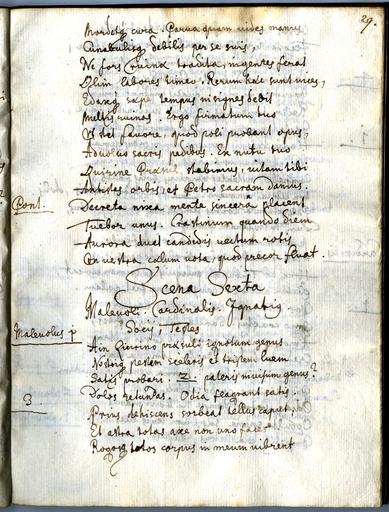 29.
Mordetq cura. Parua quam uides manu
Cunabulisq debilis per se suis,
Ne fors ruina tradita, ingentes ferat
Olim labores timeo. Rerum hae sunt uices,
Edaxq sæpe tempus insignes dedit
Multis ruinas. Ergo firmatum tuo
Vt stet fauore, quod poli probant opus,
Aduoluor sacris pedibus. Ex nutu tuo
Quirine Præsul stabimus, uitam tibi
orbis, et Petro sacram damus.
Pont. Decreta nixa mente sincera placent
Tuebor unus. Crastinum quando diem
Aurora ducet candidis uectum rotis
Ex vestra cœlum uota, quod precor fluat.
Scena Sexta
Maleuoli. Cardinalis. Ignatius
Socij Testes
Maleuolus p Ain Quirino præsuli ignotum genus
Nostriq pestem sceleris et tristem luem
Satis probari. 2. pateris inuisum genus?
3 Dolos retundas. Odia flagrant satis.
Prius dehiscens sorbeat tellus caput,
Et astra totas axe non uno faces
Rogosq totos corpus in meum uibrent